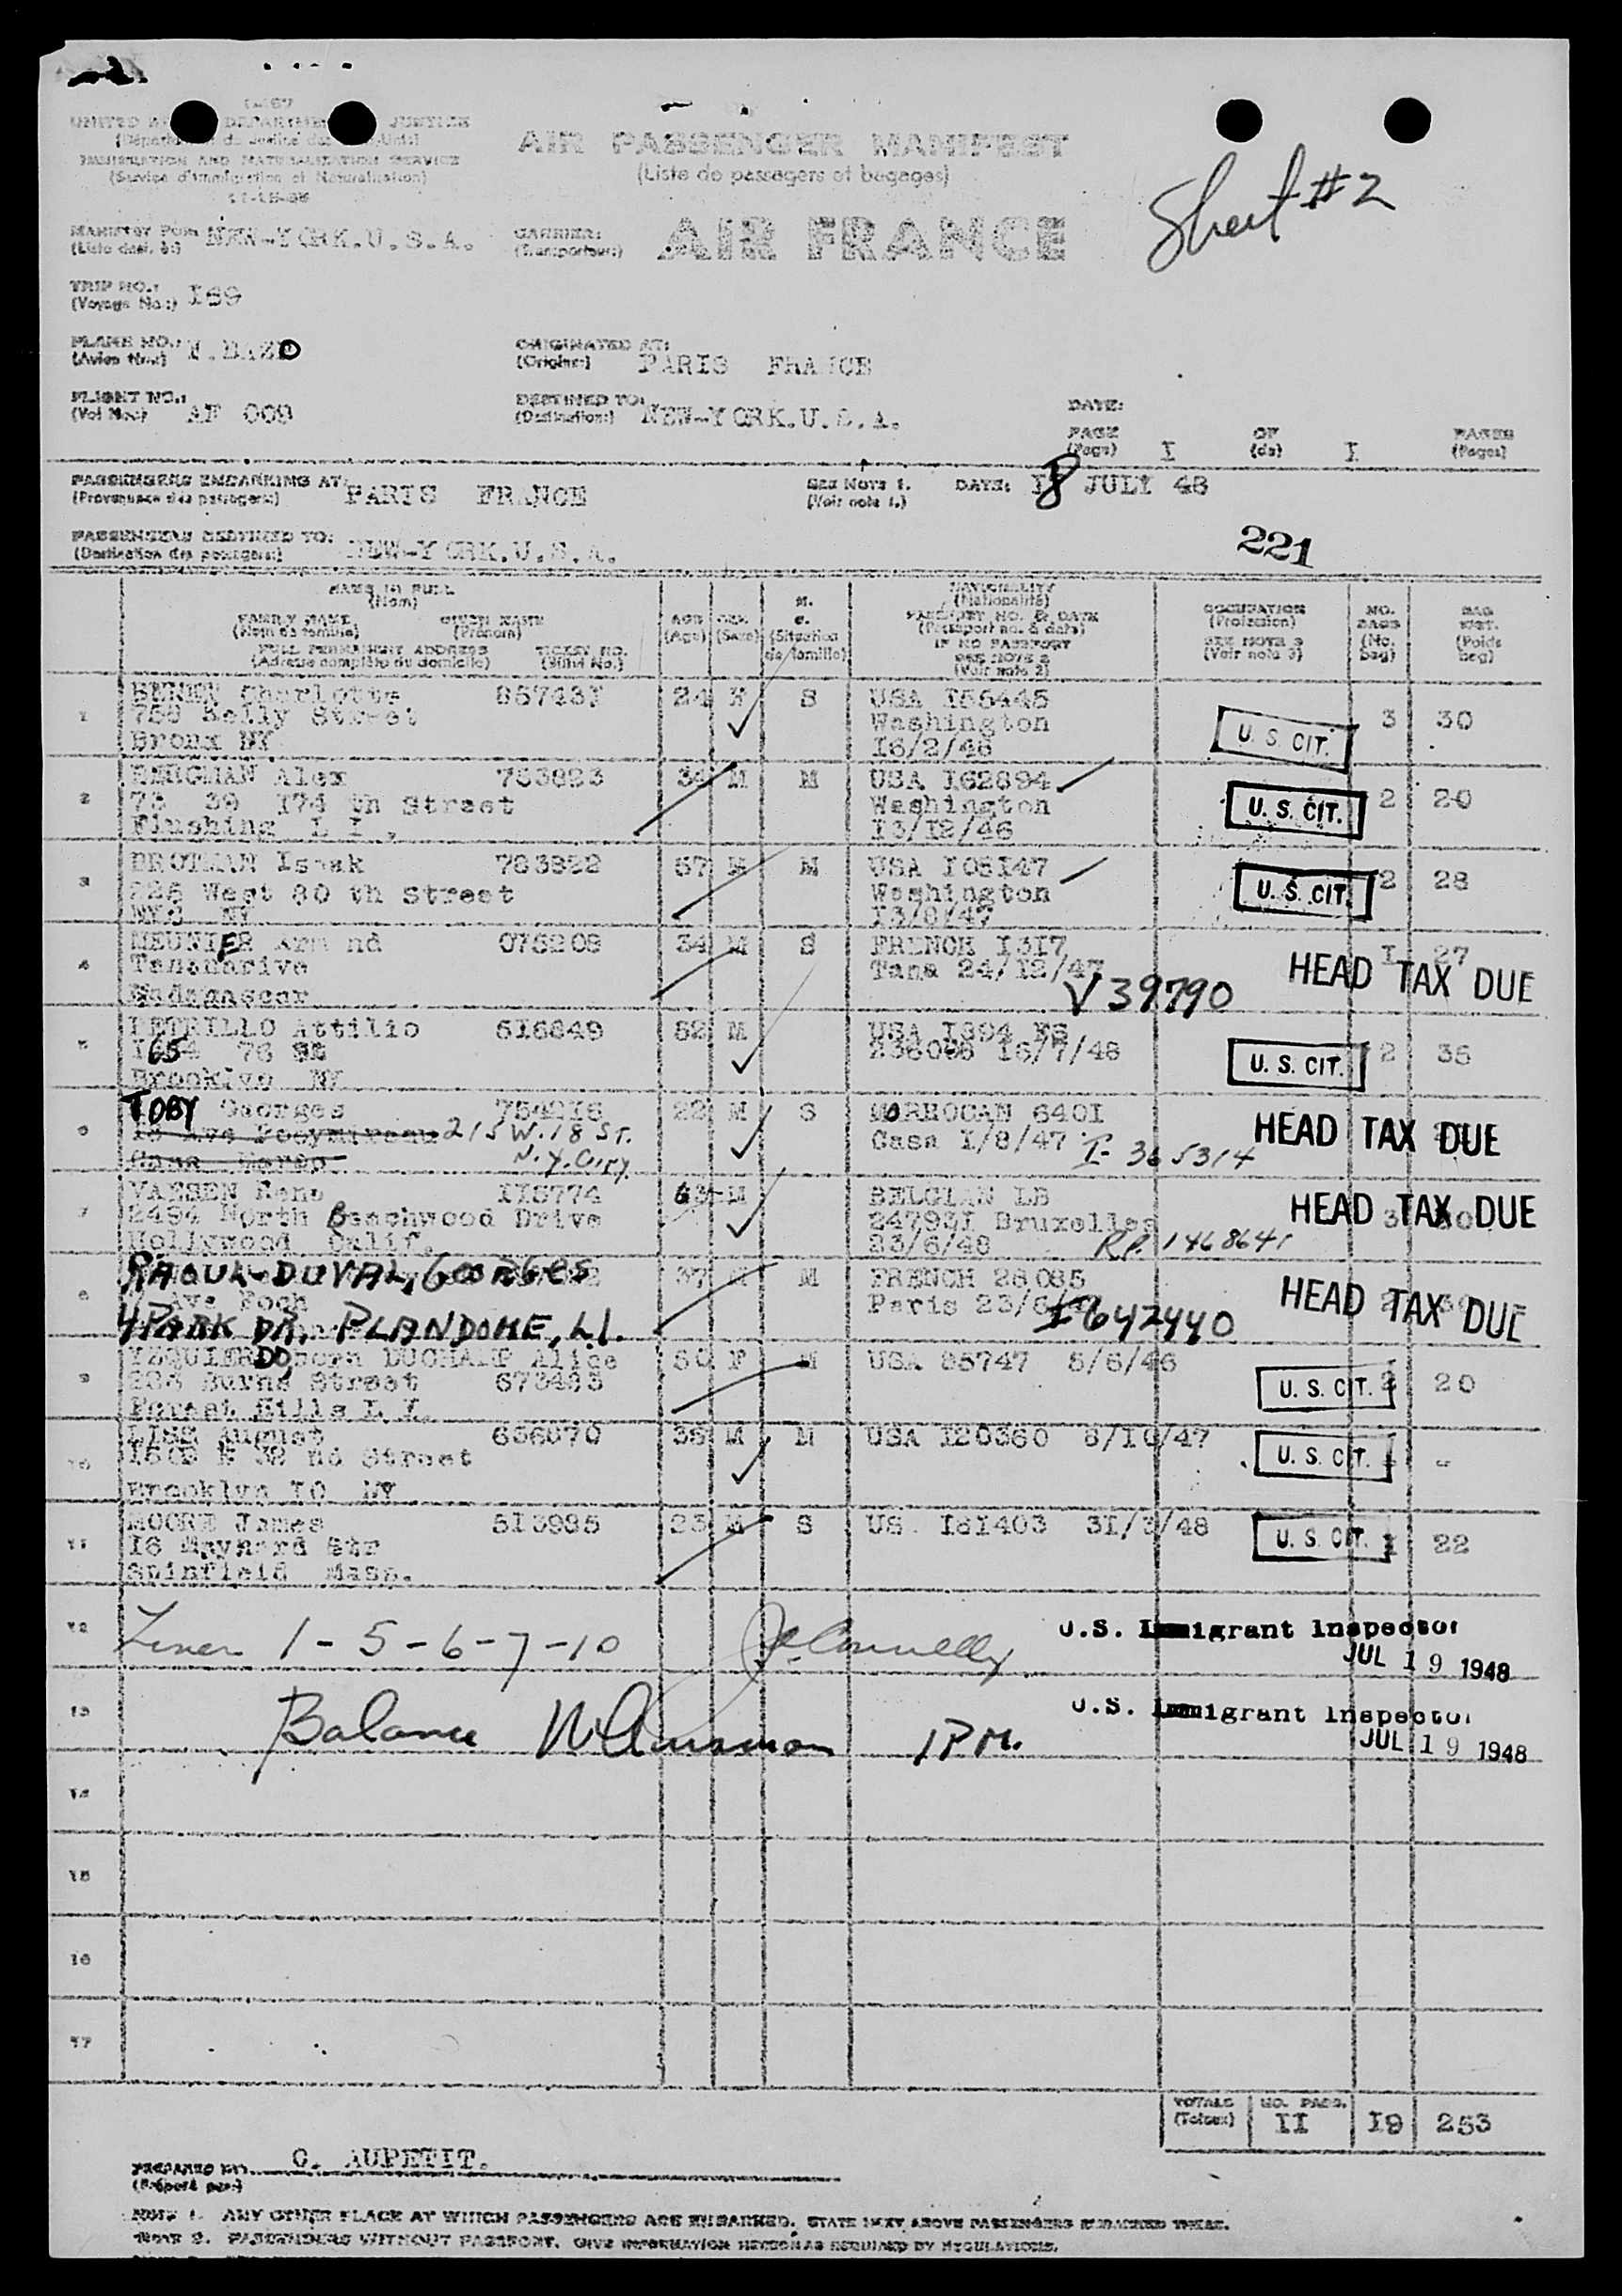 I-467
UNITED DEPARTMENT JUSTICE
IMMIGRATION AND NATURALIZATION SERVICE
(Service d'Immigration et Naturalisation)
AIR PASSENGER MANIFEST
(Liste de passagers et bagages)
Sheet #2
MANIFEST FOR: NEW-YORK.U.S.A.
CARRIER: AIR FRANCE
(Transporteur:)
TRIP NO.: I69
(Voyage No.:)
PLANE NO.:
ORIGINATED AT: PARIS FRANCE
(Origine:)
FLIGHT NO.: AF 009
(Vol No.:)
DESTINED TO: NEW-YORK.U.S.A.
(Destination:)
DATE:
PAGE I OF I PAGES
(Page) (de) (Pages)
PASSENGERS EMBARKING AT: PARIS FRANCE
(Provenance des passagers:)
SEE NOTE 1. DATE: 18 JULY 48
(Voir note 1.)
PASSENGERS DESTINED TO: NEW-YORK.U.S.A.
(Destination des passagers:)
221
NAME IN FULL
(Nom)
FAMILY NAME GIVEN NAME
(Nom de famille) (Prénom)
FULL PERMANENT ADDRESS TICKET NO.
(Adresse complète du domicile) (Billet No.)
AGE SEX
(Age) (Sexe)
M. S.
(Situation de famille)
NATIONALITY
(Nationalité)
PASSPORT NO. & DATE
(Passeport no. & date)
IF NO PASSPORT
SEE NOTE 2
(Voir note 2)
OCCUPATION
(Profession)
SEE NOTE 3
(Voir note 3)
NO. BAGS
(No. bag)
BAG WGT.
(Poids bag)
1 Charlotte 24 S USA I55445 3 30
750 Kelly Street Washington U. S. CIT.
Bronx NY I6/2/48
2 BERGMAN Alex 753823 M M USA I62894 2 20
73 39 174 th Street Washington U. S. CIT.
Flushing L I, I3/I2/46
3 BROTMAN Isaak 57 M M USA I05I47 2 28
225 West 80 th Street Washington U. S. CIT.
NYC NY I3/8/47
4 MEUNIER 076209 34 M S FRENCH I3I7 I 27
Tananarive Tana 24/I2/47 HEAD TAX DUE
Madagascar V 39790
5 PETRILLO Attilio 6I6849 52 M USA I894 FS 2 35
I654 76 St 16/7/48 U. S. CIT.
Brooklyn NY
6 TOBY Georges 22 M S MARROCAN 640I HEAD TAX DUE
215 W. 18 ST. Casa I/8/47 I- 365314
N.Y.City
7 VAESEN Rene II5774 63 M BELGIAN LB HEAD TAX DUE
2494 North Beachwood Drive 24793I Bruxelles
Hollywood Calif. 23/6/48 R.P. 1468641
8 RAOUL-DUVAL, GEORGES 37 M FRENCH 28085 HEAD TAX DUE
Ave Foch Paris
4 PARK DR. PLANDOME, L.I. I642440
9 YZQUIERDO, born DUCHAMP Alice 50 F M USA 85747 5/6/46
Burns Street 673483 U. S. CIT. 20
Forest Hills L I.
10 LISS August 656870 M M USA I20360 8/I0/47
Street U. S. CIT.
Brooklyn I0 NY
11 MOORE James 5I3985 23 M S US I6I403 3I/3/48 I 22
I8 Maynard Str U. S. CIT.
Mass.
12 1 - 5 - 6 - 7 - 10 Connelly U.S. Immigrant Inspector
JUL 19 1948
13 Balance 1 P.M. U.S. Immigrant Inspector
JUL 19 1948
14
15
16
17
TOTALS NO. PASS. II I9 253
(Totaux)
PREPARED BY: G. AUPETIT.
(Préparé par:)
NOTE 1. ANY OTHER PLACE AT WHICH PASSENGERS ARE EMBARKED, STATE NEXT ABOVE PASSENGERS EMBARKED THERE.
NOTE 2. PASSENGERS WITHOUT PASSPORT, GIVE INFORMATION HEREON AS REQUIRED BY REGULATIONS.